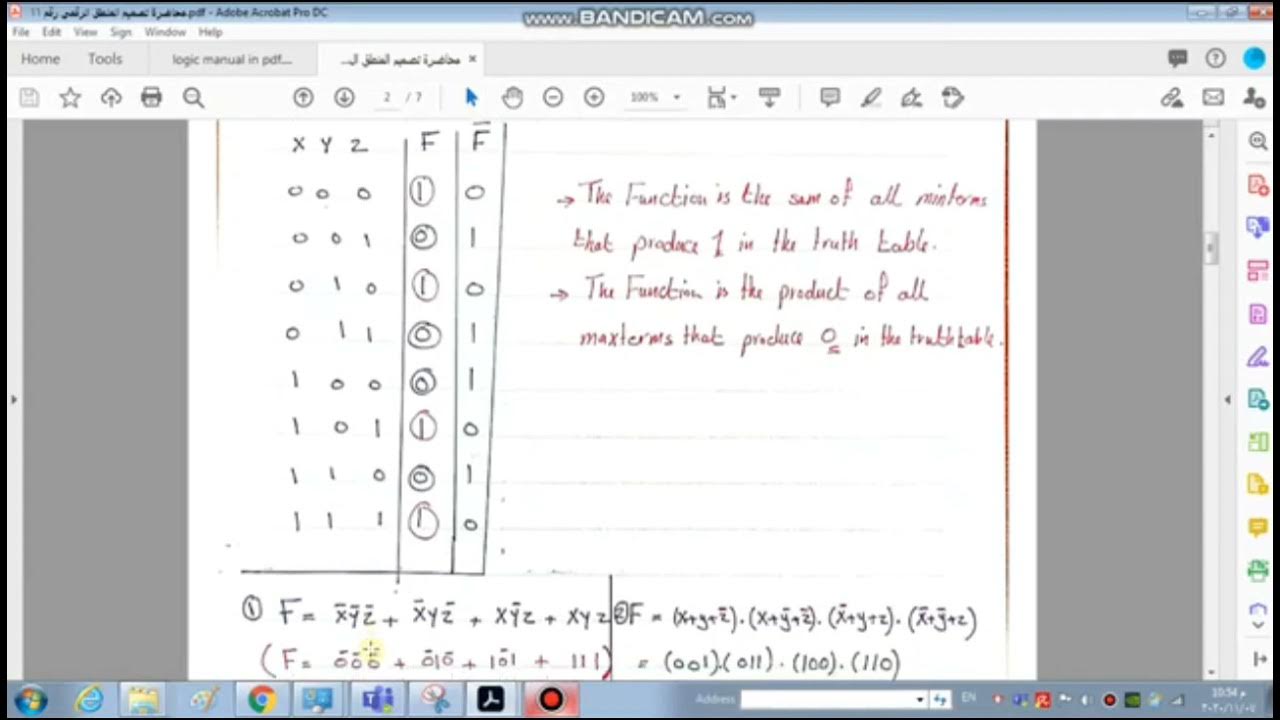 محاضرة تصميم المنطق الرقمي رقم ١١.pdf - Adobe Acrobat Pro DC
www.BANDICAM.com
File Edit View Sign Window Help
Home Tools logic manual in pdf.... محاضرة تصميم المنطق ال... ×
2 / 7 100%
X Y Z F F̅
0 0 0 1 0
0 0 1 0 1
0 1 0 1 0
0 1 1 0 1
1 0 0 0 1
1 0 1 1 0
1 1 0 0 1
1 1 1 1 0
→ The Function is the sum of all minterms
that produce 1 in the truth table.
→ The Function is the product of all
maxterms that produce 0 in the truth table.
① F = x̅y̅z̅ + x̅yz̅ + xy̅z + xyz
(F = 0̅0̅0̅ + 0̅10̅ + 10̅1 + 111)
② F = (x+y+z̅).(x+y̅+z̅).(x̅+y+z).(x̅+y̅+z)
= (001).(011).(100).(110)
Address EN 10:54 م
٢٠٢٠/١١/٠٧